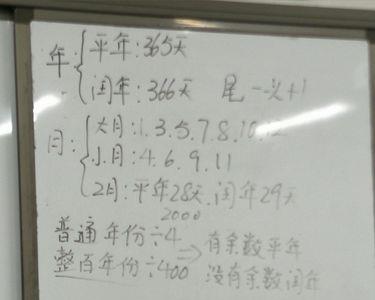 年: 平年:365天
闰年:366天 尾-头+1
月: 大月:1.3.5.7.8.10.12
小月:4.6.9.11
2月:平年28天.闰年29天
2000
普通年份÷4 → 有余数平年
整百年份÷400 没有余数闰年